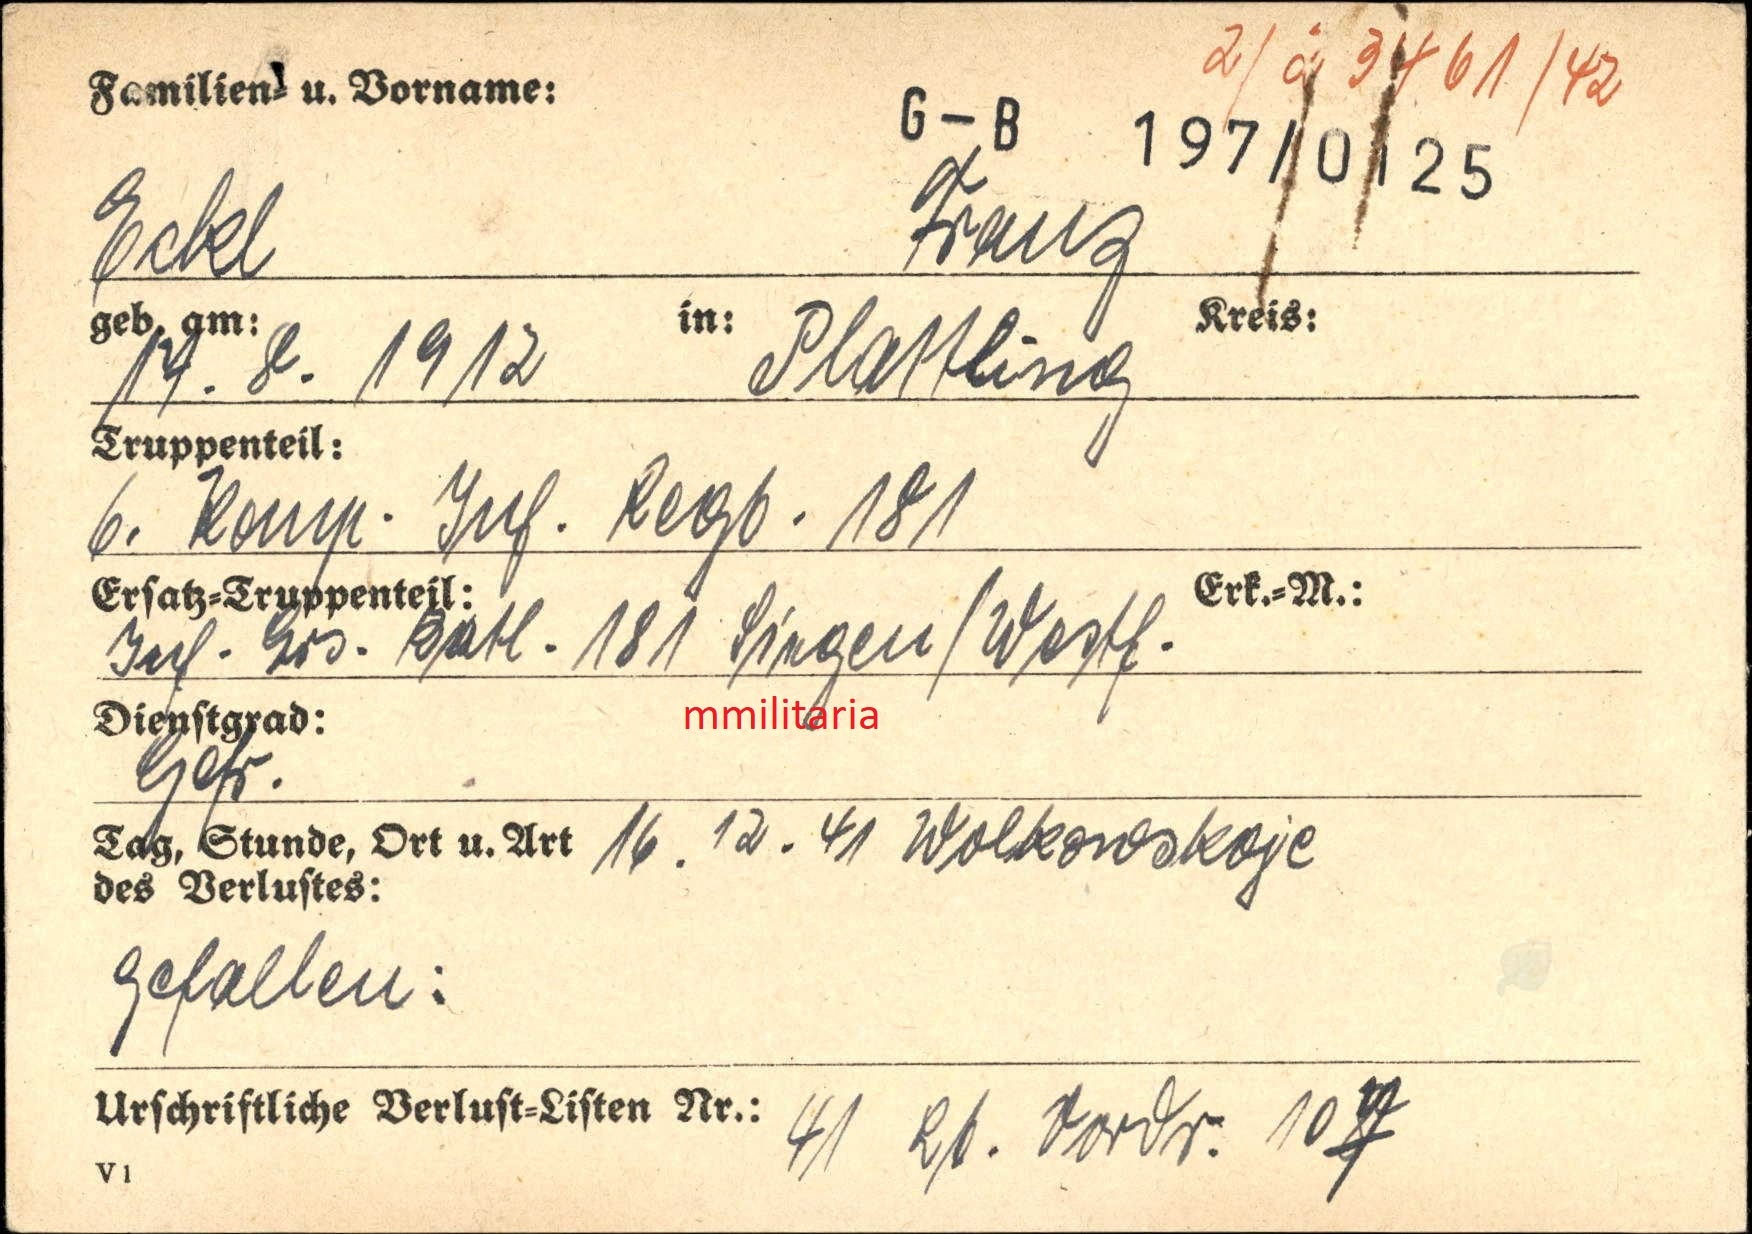 2/a 3461/42
Familien- u. Vorname:
G-B 197/0125
Eckel Franz
geb. am: in: Kreis:
14. 8. 1912 Plattling
Truppenteil:
6. Komp. Inf. Regt. 181
Ersatz-Truppenteil: Erk.-M.:
Inf. Ers. Batl. 181 Siegen/Westf.
mmilitaria
Dienstgrad:
Gefr.
Tag, Stunde, Ort u. Art 16. 12. 41 Wolkowskoje
des Verlustes:
gefallen:
Urschriftliche Verlust-Listen Nr.: 41 Lb. Vordr. 10
V1